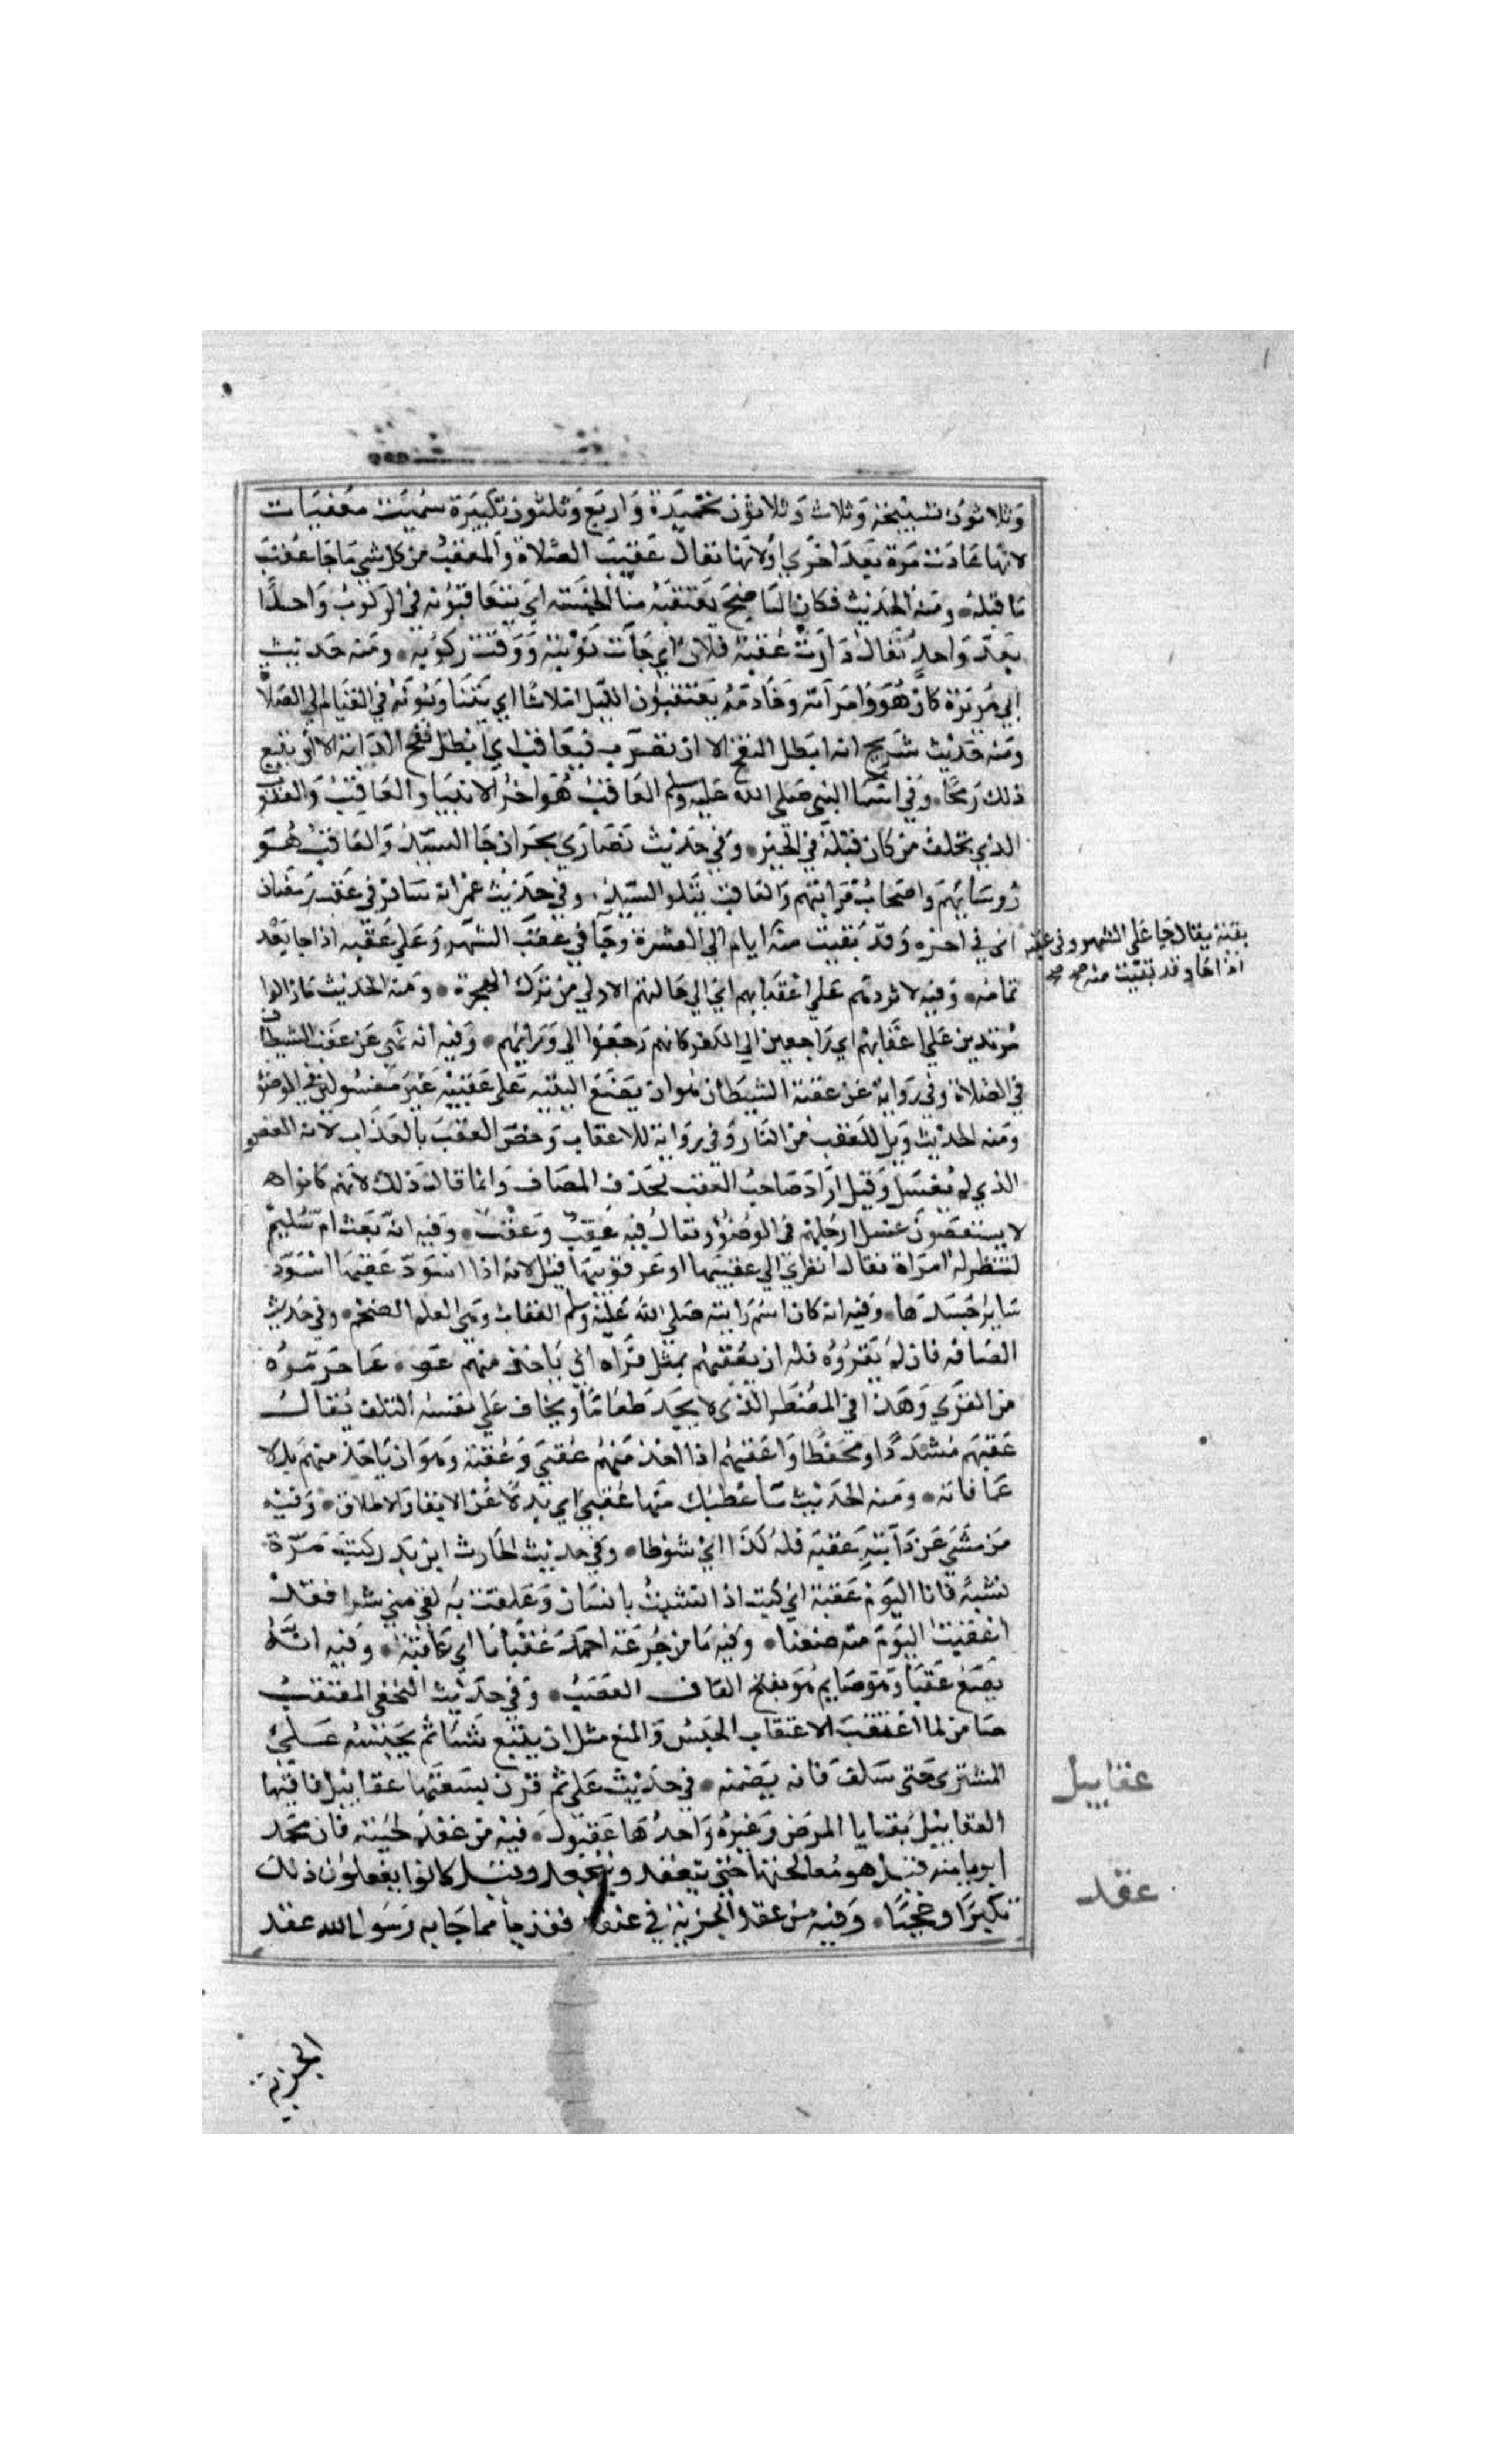 وثلاثون تسبيحة وثلاث وثلاثون تحميدة واربع وثلثون تكبيرة سميت معقبات
لانها عادت مرة بعد اخري او لانها تقال عقيب الصلاة والمعقب من كل شي ما جا عقب
ما قبله ومنه الحديث فكان الناضح يعتقبه منا الخمسة اي يتعاقبونه في الركوب واحدا
بعد واحد يقال دارت عقبة فلان اي جات نوبته ووقت ركوبه ومنه حديث
ابي هريرة كان هو وامراته وخادمه يعتقبون الليل اثلاثا اي يتناوبونه في القيام الي الصلاة
ومنه حديث شريح انه ابطل النفح الا ان تضرب فتعاقب اي ابطل نفح الدابة الا ان تتبع
ذلك رمحا وفي اسما النبي صلي الله عليه وسلم العاقب هو اخر الانبيا والعاقب والعقوب
الذي يخلف من كان قبله في الخير وفي حديث نصاري نجران جا السيد والعاقب هو
روسايهم واصحاب مراتبهم والعاقب يتلو السيد وفي حديث عمر انه سافر في عقب رمضان
اي في اخره وقد بقيت منه ايام الي العشرة وجا في عقب الشهر وعلي عقبه اذا جا بعد
بقية يقال جا علي الشهر وفي عقبه
اذا جا وقد بقيت منه صح
تمامه وفيه لا تردهم علي اعقابهم اي الي حالتهم الاولي من ترك الهجرة ومنه الحديث ما زالوا
مرتدين علي اعقابهم اي راجعين الي الكفر كانهم رجعوا الي ورايهم وفيه انه نهي عن عقب الشيطان
في الصلاة وفي رواية عن عقبة الشيطان هو ان يضع اليتيه علي عقبيه غير مغسولين في الوضو
ومنه الحديث ويل للعقب من النار وفي رواية للاعقاب وخص العقب بالعذاب لانه العضو
الذي لم يغسل وقيل اراد صاحب العقب بحذف المضاف وانما قال ذلك لانهم كانوا
لا يستقصون غسل ارجلهم في الوضوو يقال فيه عقب وعقب وفيه انه بعث ام سليم
لتنظر له امراة فقال انظري الي عقبيها او عرقوبيها قيل لانه اذا اسود عقبها اسود
ساير جسدها وفيه انه كان اسم رايته صلي الله عليه وسلم العقاب وهي العلم الضخم وفي حديث
الضيافة فان لم يقروه فله ان يعقبهم بمثل قراه اي ياخذ منهم عوضا عما حرموه
من القري وهذا في المضطر الذي لا يجد طعاما ويخاف علي نفسه التلف يقال
عقبهم مشددا ومخففا واعقبهم اذا اخذ منهم عقبي وعقبة وهو ان ياخذ منهم بدلا
عما فاته ومنه الحديث ساعطيك منها عقبي اي بدلا عن الابقا والاطلاق وفيه
من مشي عن دابته عقبة فله كذا اي شوطا وفي حديث الحارث ابن بدر كنت مرة
نشبة فانا اليوم عقبة اي كنت اذا نشبت بانسان وعلقت به لقي مني شرا فقد
اعقبت اليوم منه ضعفا وفيه ما من جرعة احمد عقبانا اي عاقبة وفيه انه
يضع عقبا وهو صايم هو بفتح القاف العصب وفي حديث النخعي المعتقب
ضامن لما اعتقب الاعتقاب الحبس والمنع مثل ان يبيع شيا ثم يحبسه علي
المشتري حتي يتلف فانه يضمنه في حديث علي ثم قرن بسعتها عقابيل فاقتها
عقابيل
العقابيل بقايا المرض وغيره واحدها عقبول فيه من عقد لحيته فان محمدا
بري منه قيل هو معالجتها حتي تتعقد وتتجعد وقيل كانوا يفعلون ذلك
عقد
تكبرا وعجبا وفيه من عقد الجزية في عنقه فقد بري مما جا به رسول الله عقد
الجزية